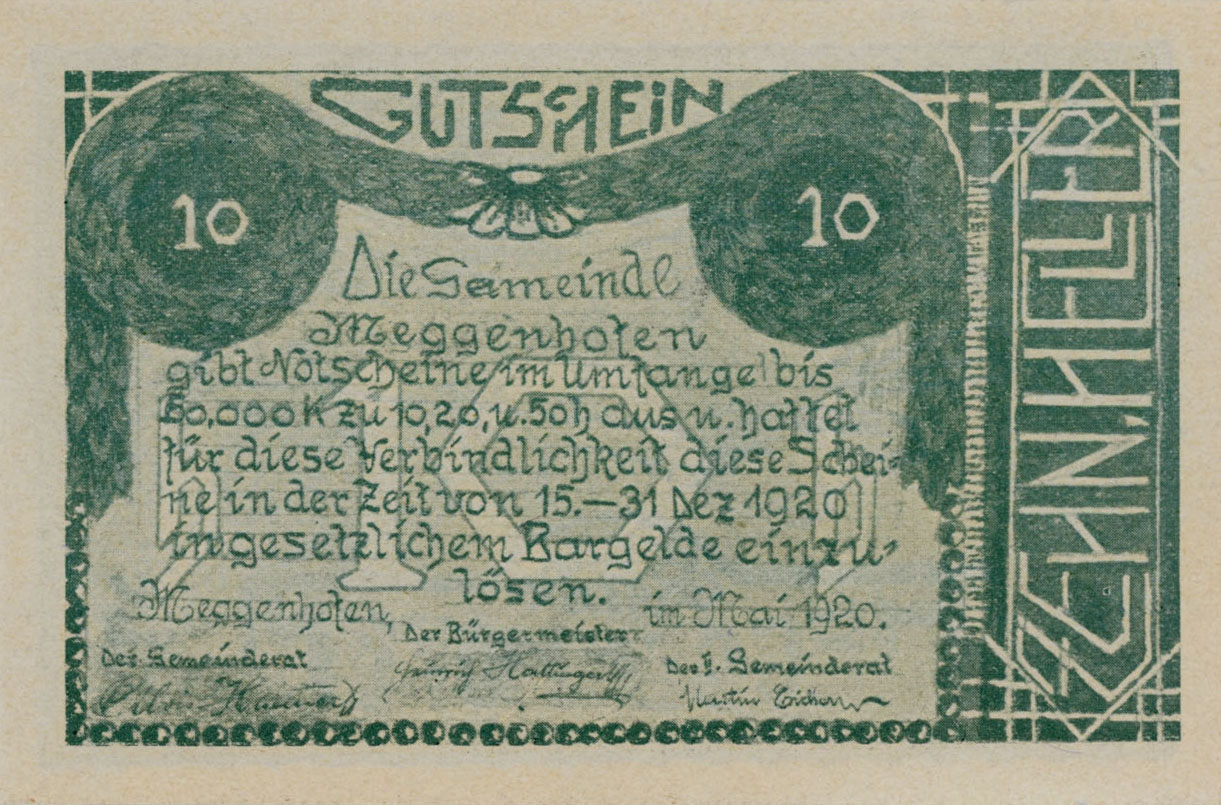 GUTSCHEIN
10
10
Die Gemeinde
Meggenhofen
gibt Notscheine im Umfange bis
60,000 K zu 10, 20, u. 50 h aus u. haftet
für diese Verbindlichkeit diese Schei-
ne in der Zeit von 15.–31 Dez 1920
in gesetzlichem Bargelde einzu-
lösen.
Meggenhofen, im Mai 1920.
Der Bürgermeister
Der Gemeinderat
Der I. Gemeinderat
Heinrich
Martin
ZEHN HELLER